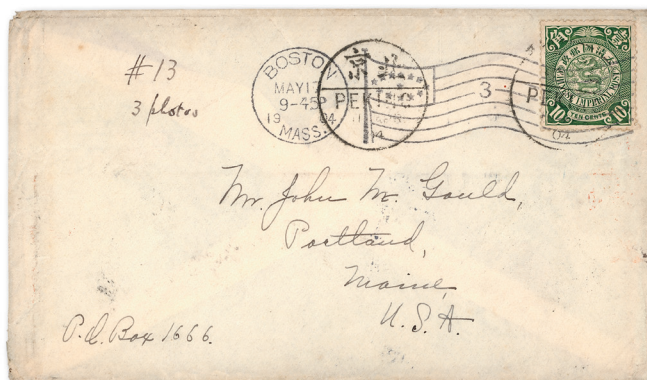 #13
3 photos
BOSTON
MAY 17
9-45P
1904
MASS.
PEKING
京
3
大清國郵政
CHINESE IMPERIAL POST
10 TEN CENTS 10
Mr. John M. Gould,
Portland,
Maine,
U.S.A.
P.O. Box 1666.